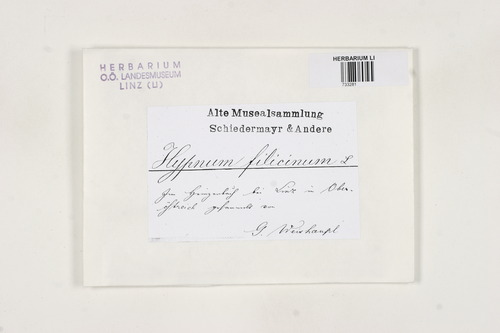 HERBARIUM
O.Ö. LANDESMUSEUM
LINZ (LI)
HERBARIUM LI
733281
Alte Musealsammlung
Schiedermayr & Andere
Hypnum filicinum L
Im bei Linz in Ober-
östreich gesammelt von
G. Weishäupl